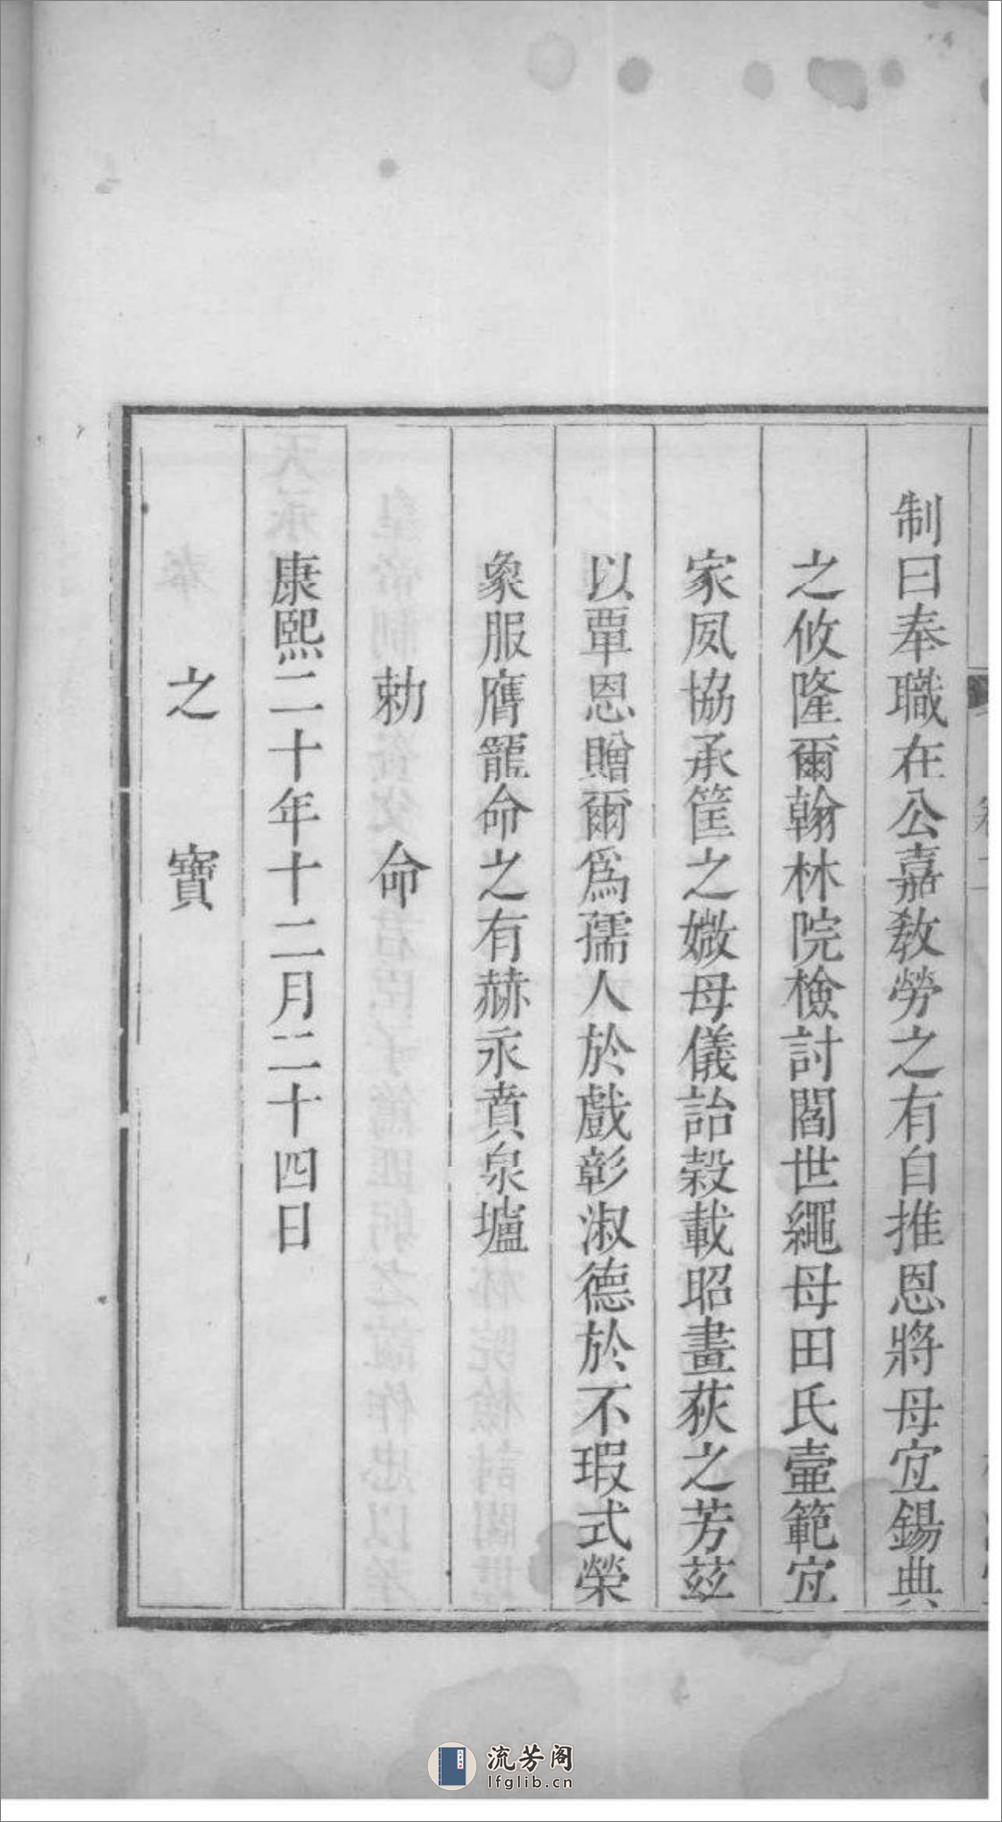 制曰奉職在公嘉教勞之有自推恩將母宜錫典
之攸隆爾翰林院檢討閻世繩母田氏壼範宜
家夙協承筐之媺母儀詒榖載昭畫荻之芳茲
以覃恩贈爾爲孺人於戲彰淑德於不瑕式榮
象服膺寵命之有赫永賁泉壚
勅命
康熙二十年十二月二十四日
之寶
流芳阁
lfglib.cn